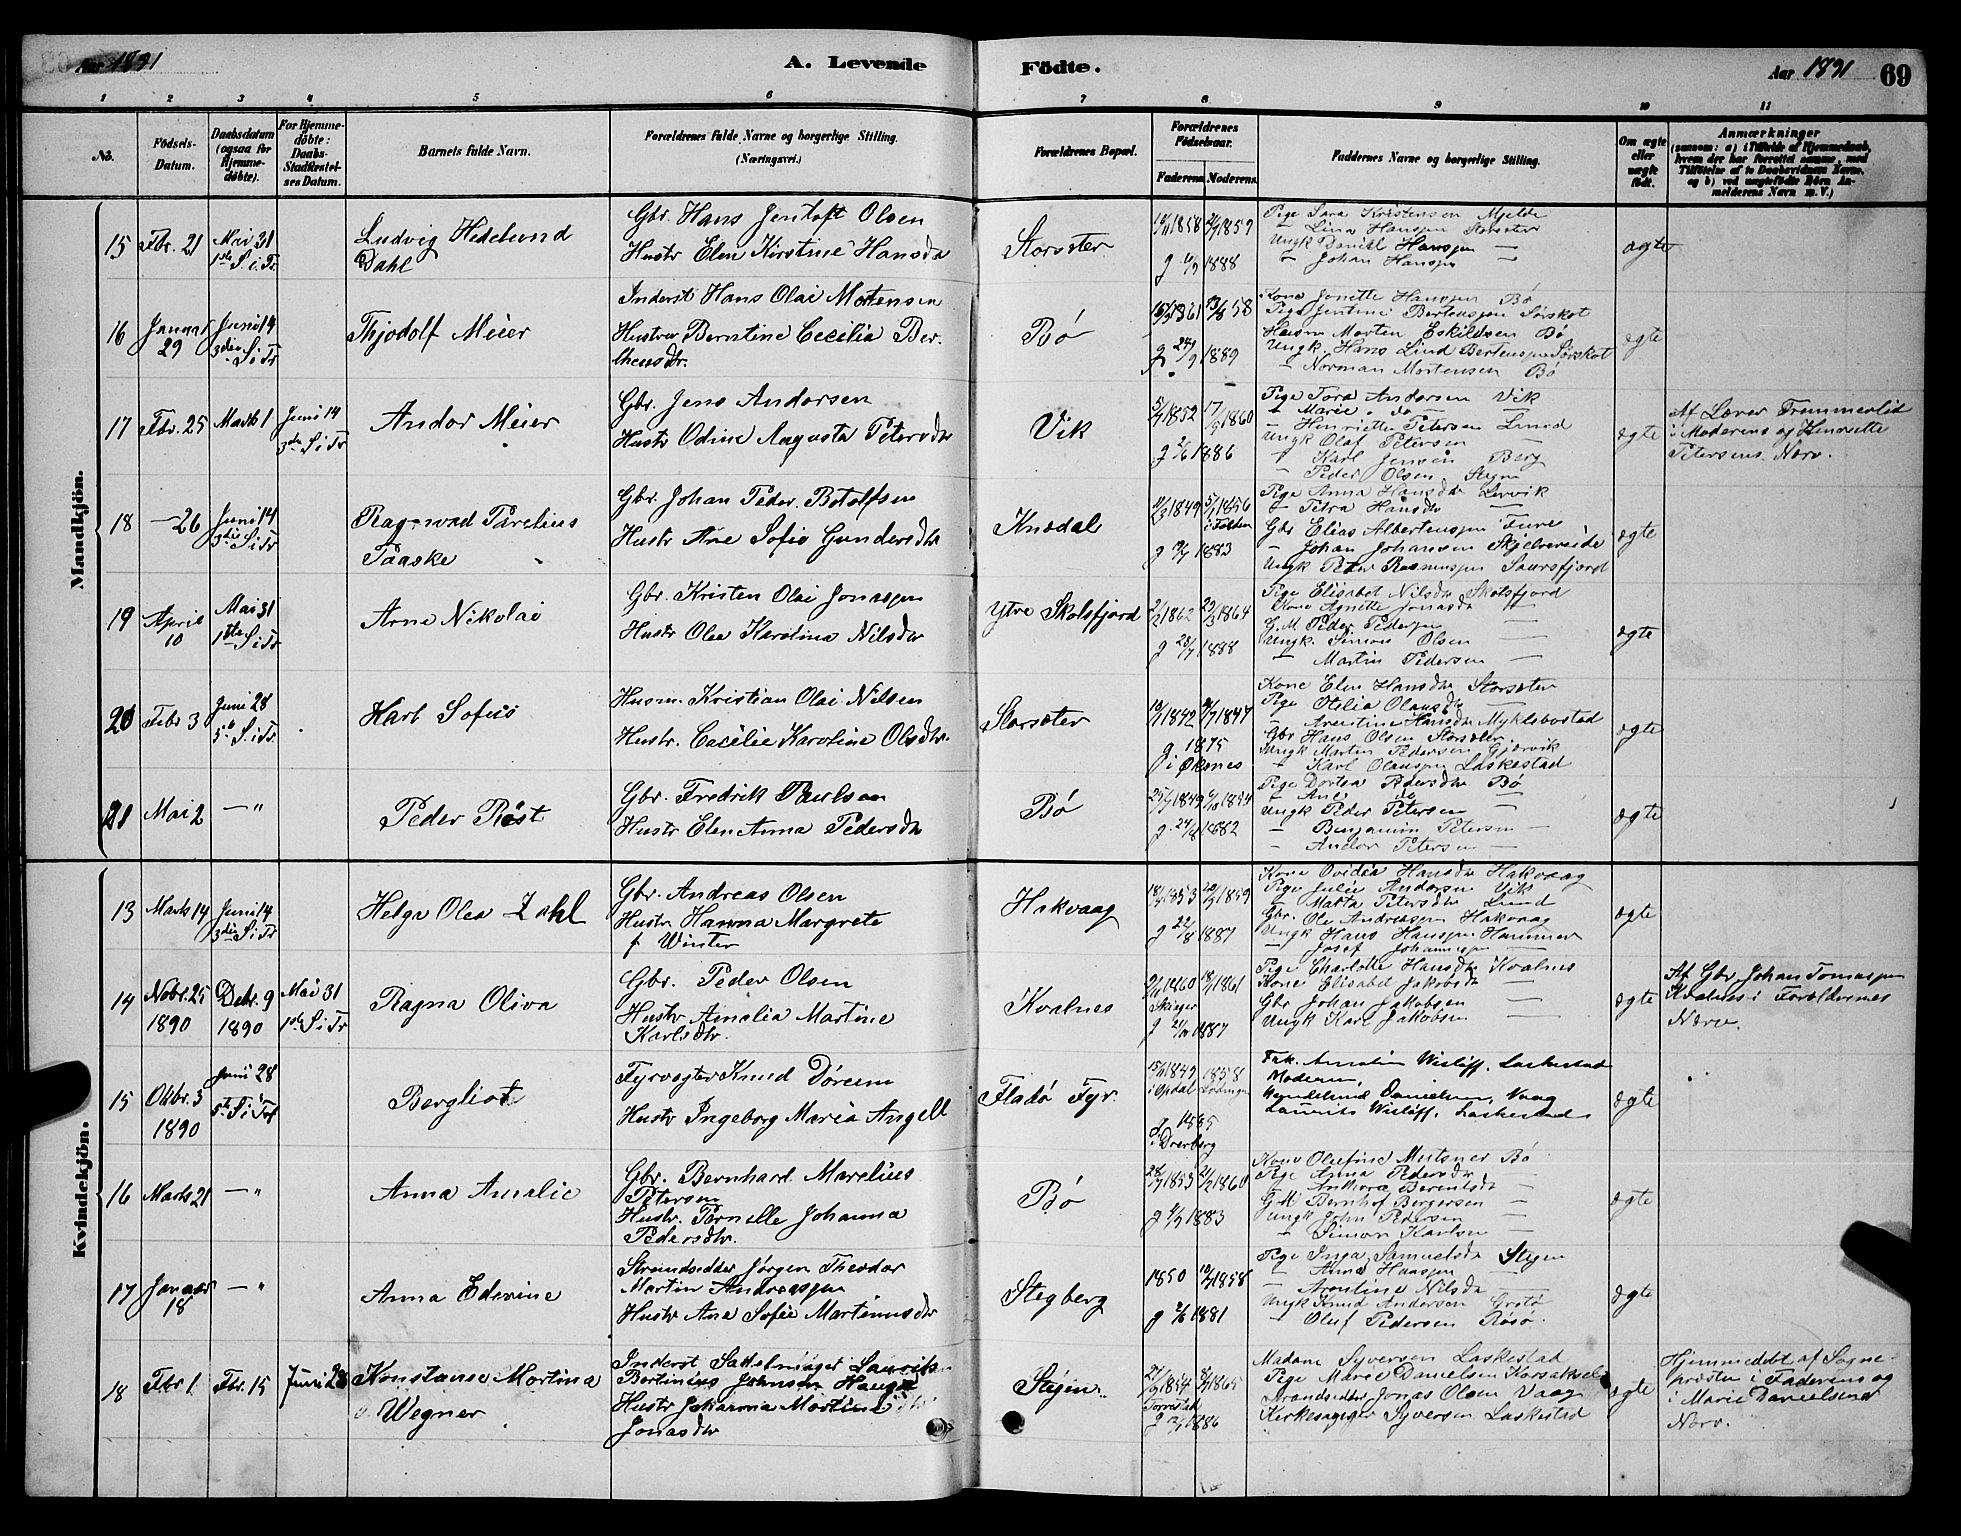 Aar 1891
A. Levende
Födte.
Aar 1891
69
1 2 3 4 5 6 7 8 9 10 11
No.
Födsels-Datum.
Daabsdatum (ogsaa for Hjemme-döbte).
For Hjemme-döbte: Daabs-Stadfæstel-ses Datum.
Barnets fulde Navn.
Forældrenes fulde Navne og borgerlige Stilling.
(Næringsvei.)
Forældrenes Bopæl.
Forældrenes Födselsaar.
Faderens Moderens
Faddernes Navne og borgerlige Stilling.
Om ægte eller uægte födt.
Anmærkninger
(saasom: a) i Tilfælde af Hjemmedaab, hvem der har forrettet samme, med Tilföielse af to Daabsvidners Navne, og b) ved uægtefödte Börn An-melderens Navn m. V.)
Mandkjön.
15 Fbr. 21 Mai 31 1ste S. i. Tr.
Ludvig Hedelund Dahl
Gbr. Hans Jentoft Olsen
Hustr Elen Kirstine Hansdr
Storsæter
1858 1859
g 1888
Pige Sara Kristensen Mjelde
- Lina Hansen Storsæter
Ungk Daniel Hansen —
- Johan Hansen —
ægte
16 Januar 29 Juni 14 3die S i Tr
Thjodolf Meier
Inderst Hans Olai Mortensen
Hustru Berntine Cecilia Ber-
theusdtr.
Bø
g 24/9 1889
Kone Jonette Hansen Bø
Pige Jentine Bertensen Sørskot
Husm Morten Eskildsen Bø
Ungk. Hans Lind Bertensen Sørskot
- Norman Mortensen Bø
ægte
17 Fbr. 25 Marts 1 Juni 14 3die S i Tr
Andor Meier
Gbr. Jens Andersen
Hustr Odine Augusta Petersdtr
Vik
1852 1860
g 1886
Pige Tora Andersen Vik
- Marie do
- Henriette Petersen Lund
Ungk Olaf Petersen —
- Karl Jensen Berg
- Peder Olsen Stegen
ægte
Af Lærer Trommerlid
i Moderens og Henriette
Petersens Nærv.
18 — 26 Juni 14 3die S i Tr
Ragnvad Parelius
Paaske
Gbr. Johan Peder Botolfsen
Hustr Ane Sofie Gundersdtr
Knedal
1849 1856
g 1883
Pige Anna Hansdtr Lervik
- Petra Hansdtr —
Gbr Elias Albertensen Fure
- Johan Johansen Skjelvereide
Ungk Peter Rasmussen Saursfjord
ægte
19 April 10 Mai 31 1ste S i Tr
Arne Nikolai
Gbr. Kristen Olai Jonassen
Hustr Olea Karolina Nilsdtr
Ytre Skotsfjord
1862 1864
g 1888
Pige Elisabet Nilsdtr Skotsfjord
Kone Agnette Jonasdtr
G.M Peder Pedersen —
Ungk. Simon Olsen —
- Martin Pedersen —
ægte
20 Fbr 3 Juni 28 5te S. i Tr
Karl Sofus
Husm. Kristian Olai Nilsen
Hustr. Cecilie Karoline Olsdtr.
Storsæter
1842 1847
g 1875
i Øksnes
Kone Elen Hansdtr Storsæter
Pige Otilia Olausdtr
- Arentine Hansdtr Myklebostad
Gbr Hans Olsen Storsæter
Ungk Martin Pedersen Gjærvik
- Karl Olausen Laskestad
ægte
21 Mai 2 — "
Peder Røst
Gbr. Fredrik Paulsen
Hustr Elen Anna Pedersdtr
Bø
1849 1854
g. 24/8 1882
Pige Dortea Pedersdtr Bø
- Ane do —
Ungk Peder Petersen —
- Benjamin Petersen —
- Andor Petersen —
ægte
Kvindekjön.
13 Marts 14 Juni 14 3die S i Tr
Helga Olea Zahl
Gbr. Andreas Olsen
Hustr Hanna Margrete
f. Winter
Hakvaag
1853 1859
g 22/8 1887
Kone Ovidia Hansdtr Hakvaag
Pige Julie Andersen Vik
- Marta Petersdtr Lund
Gbr. Ole Andreassen Hakvaag
Ungk Hans Hansen Hammer
- Josef Johannessen —
ægte
14 Nobr. 25 1890 Debr. 9 1890 Mai 31 1ste S i Tr
Ragna Oliva
Gbr. Peder Olsen
Hustr Amalia Martine
Karlsdtr.
Kvalnes
1860 1861
g 1887
Pige Charlotte Hansdtr Kvalnes
Kone Elisabet Jakobsdtr —
Gbr Johan Jakobsen —
Ungk Karl Jakobsen —
ægte
Af Gbr Johan Tomassen
Kvalnes i Forældrenes
Nærv.
15 Oktbr. 3 1890 Juni 28 5te S i Tr
Bergliot
Fyrvogter Knud Dørum
Hustr Ingeborg Maria Angell
Fladø Fyr.
1849 1858
i Opdal Lødingen
g. 1885
Frk. Amalia Wisløff, Laskestad
Moderen,
Danielsen, Vaag
Laurits Wisløff, Laskestad
ægte
16 Marts 21 — "
Anna Amalie
Gbr. Bernhard Marelius
Petersen
Hustr. Pernelle Johanna
Pedersdtr.
Bø
1853 1860
g 1883
Kone Olufine Mutsner Bø
Pige Anna Pedersdtr —
- Ankora Berentsdtr —
G M Bernhof Bergersen —
Ungk John Pedersen —
- Simon Karlsen —
ægte
17 Januar 18 — "
Anna Edevine
Strandsidder Jørgen Theodor
Martin Andreassen
Hustr Ane Sofie Martinusdtr
Stegberg
1850 1858
g 1881
Pige Inga Samuelsdtr Stegen
- Anna Hansen —
- Arentine Nilsdtr —
Ungk Knud Andersen Grøtø
- Oluf Pedersen Røsø.
ægte
18 Fbr 1. Fbr. 15 Juni 28
Konstanse Martina
Wegner
Inderst Sadelmager Laurits
Bertinius Johnsen Haugen
Hustr Johanna Martine
Jonasdtr
Stegen.
1854 1865
g 1886
Madam Syversen Laskestad
Pige Marie Danielsen
Strandsidder Jonas Olsen Vaag
Kirkesanger Syversen Laskestad
ægte
Hjemmedøbt af Sogne-
præsten i Faderens og
i Marie Danielsens
Nærv.